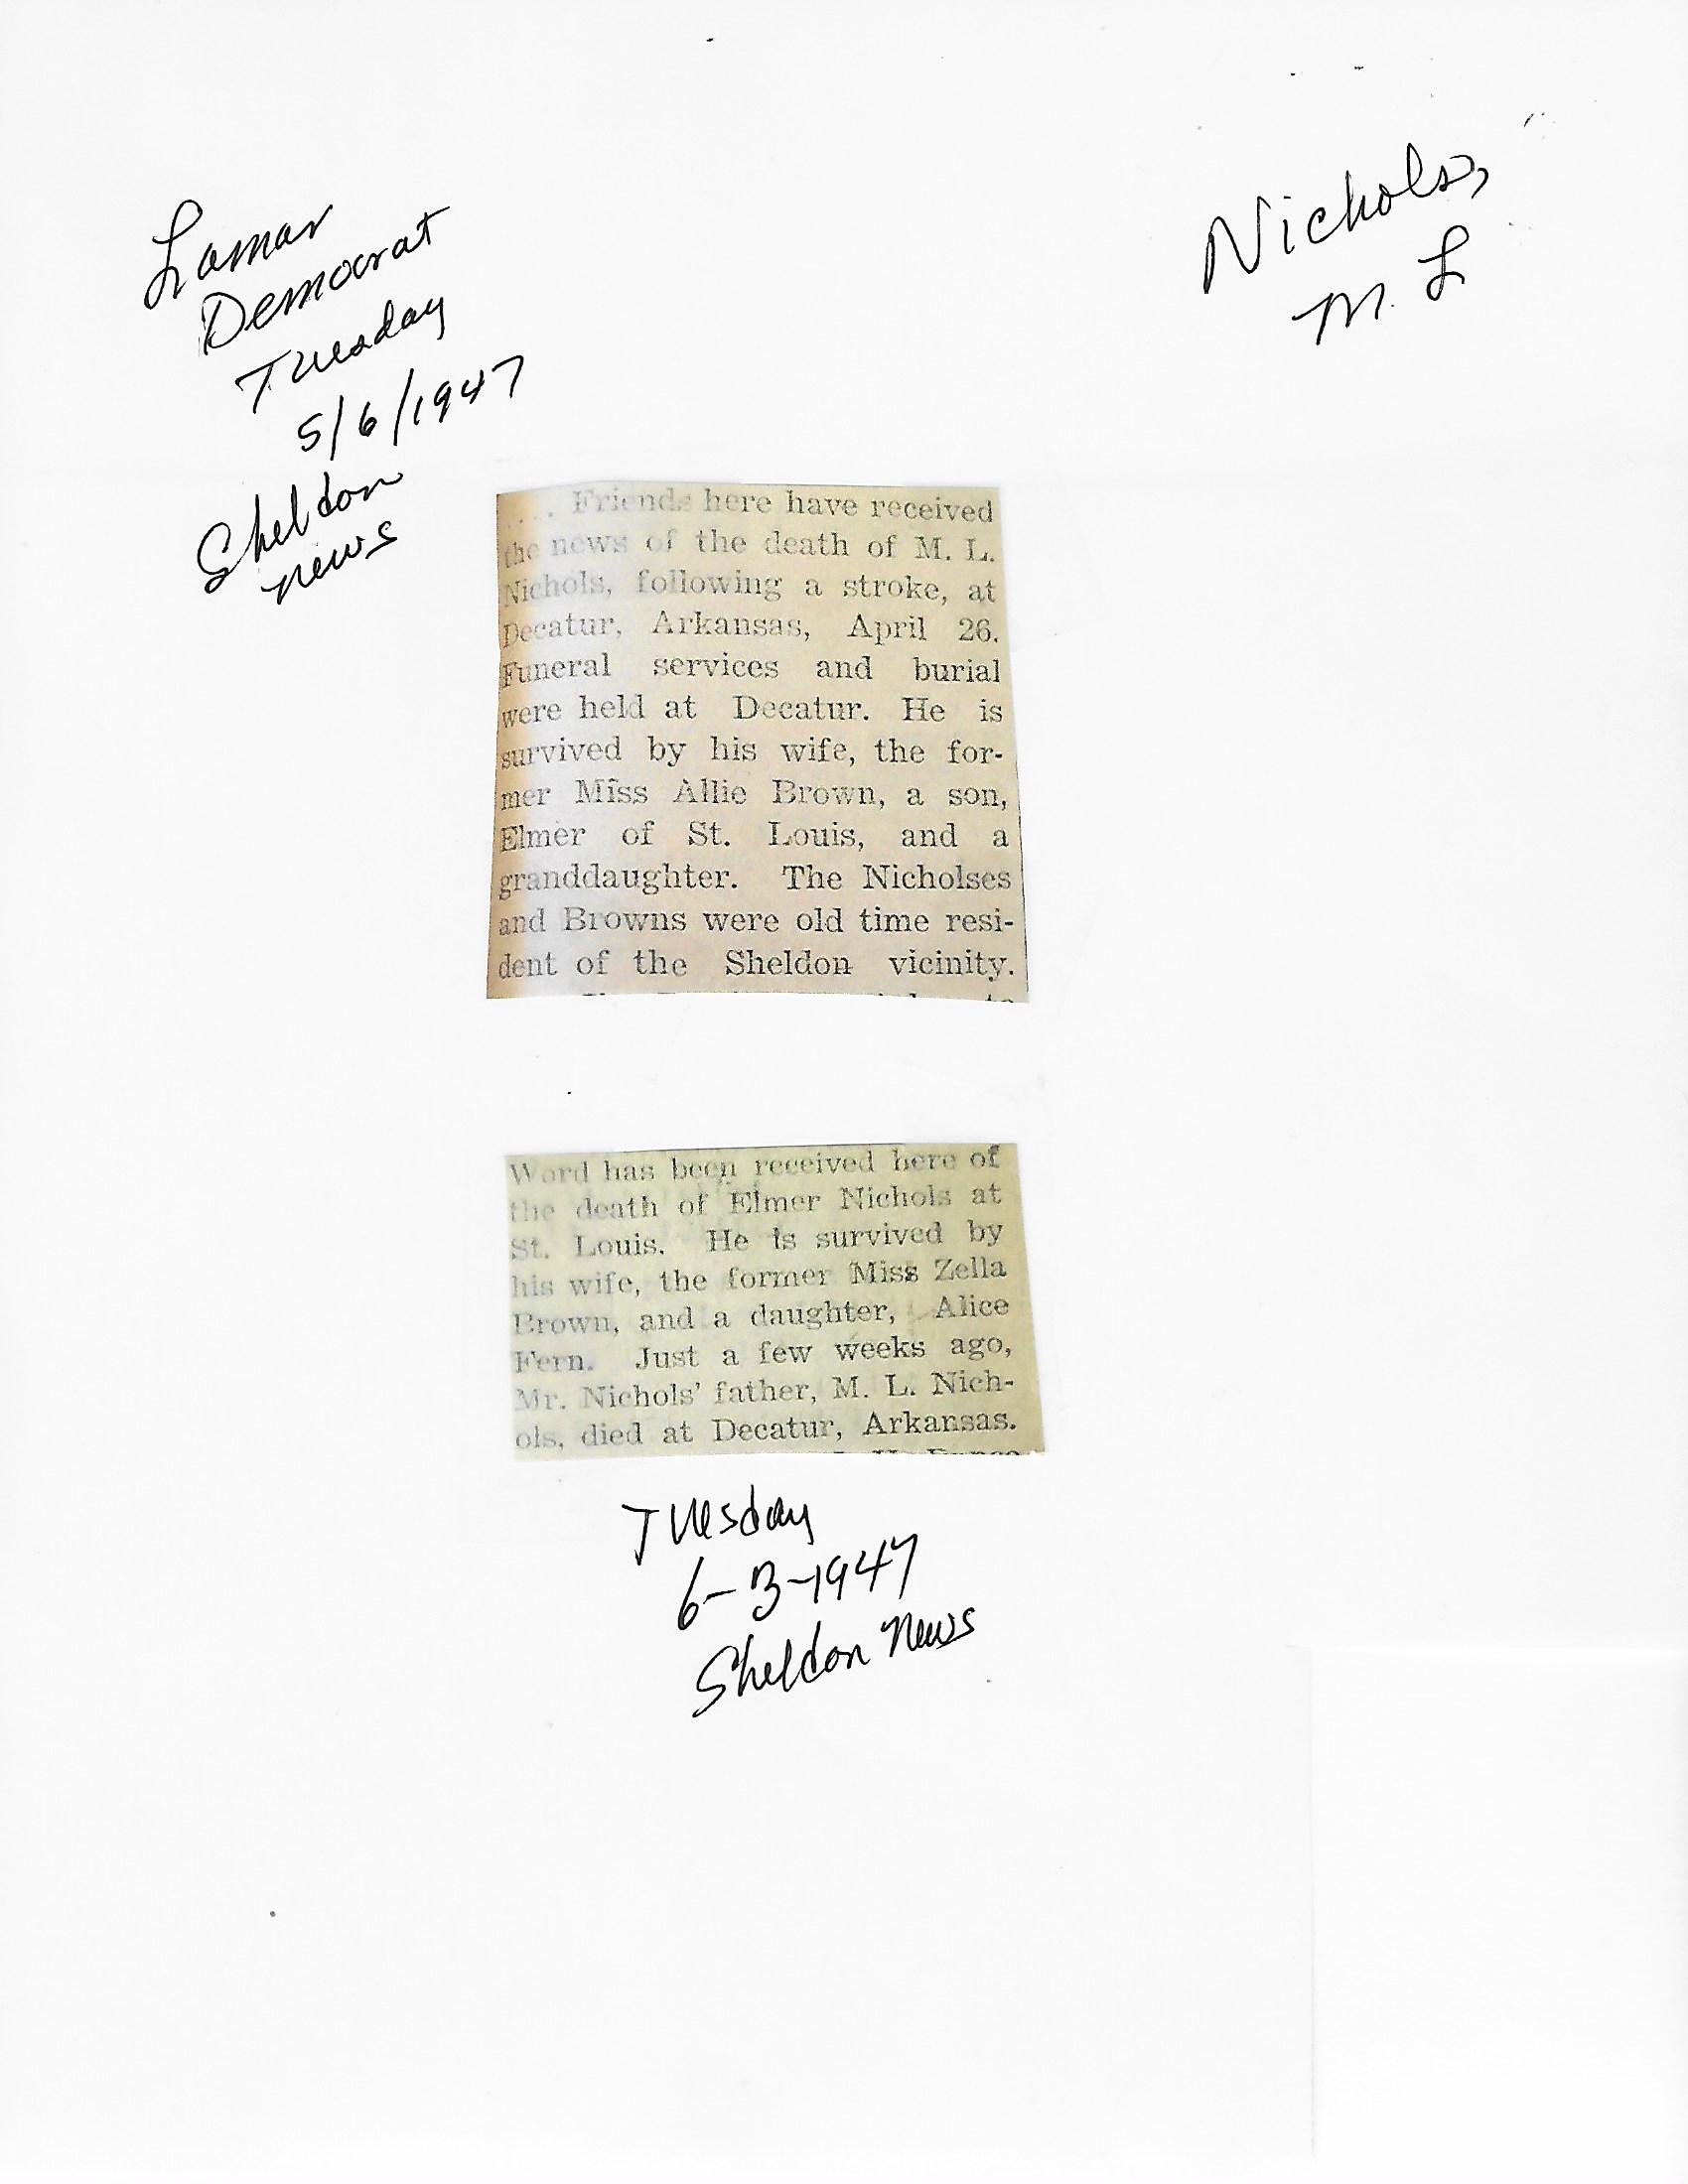 Lamar
Democrat
Tuesday
5/6/1947
Sheldon
news
Nichols,
M. L
.... Friends here have received
the news of the death of M. L.
Nichols, following a stroke, at
Decatur, Arkansas, April 26.
Funeral services and burial
were held at Decatur. He is
survived by his wife, the for-
mer Miss Allie Brown, a son,
Elmer of St. Louis, and a
granddaughter. The Nicholses
and Browns were old time resi-
dent of the Sheldon vicinity.
Word has been received here of
the death of Elmer Nichols at
St. Louis. He is survived by
his wife, the former Miss Zella
Brown, and a daughter, Alice
Fern. Just a few weeks ago,
Mr. Nichols' father, M. L. Nich-
ols, died at Decatur, Arkansas.
Tuesday
6-3-1947
Sheldon News